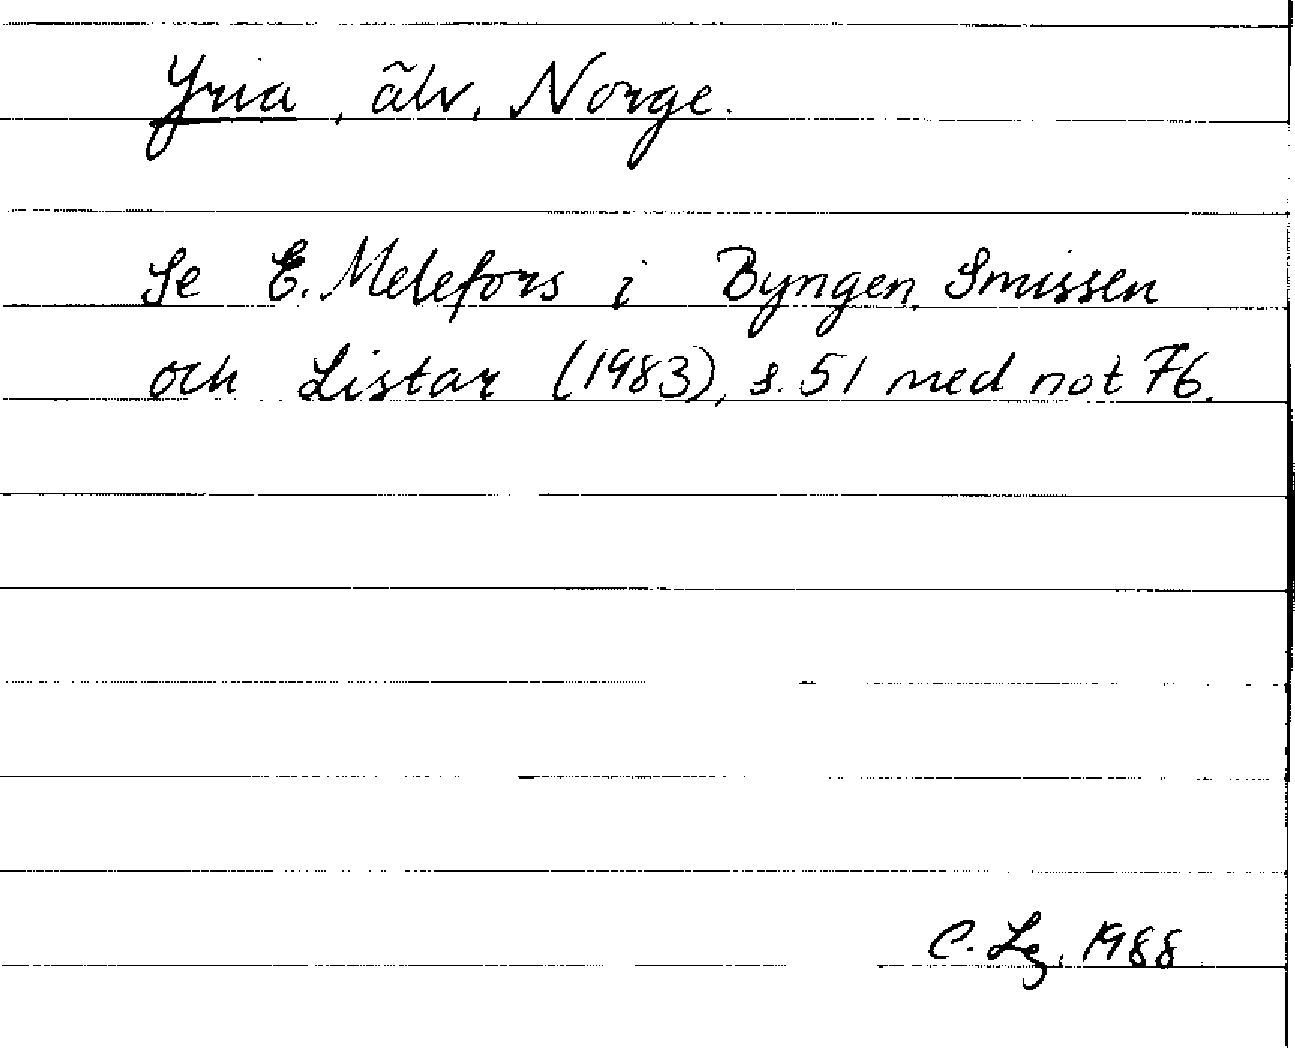 Yria, älv, Norge.
Se E. Melefors i Byngen, Smissen
och Listar (1983), s. 51 med not 76.
C. Lg. 1988